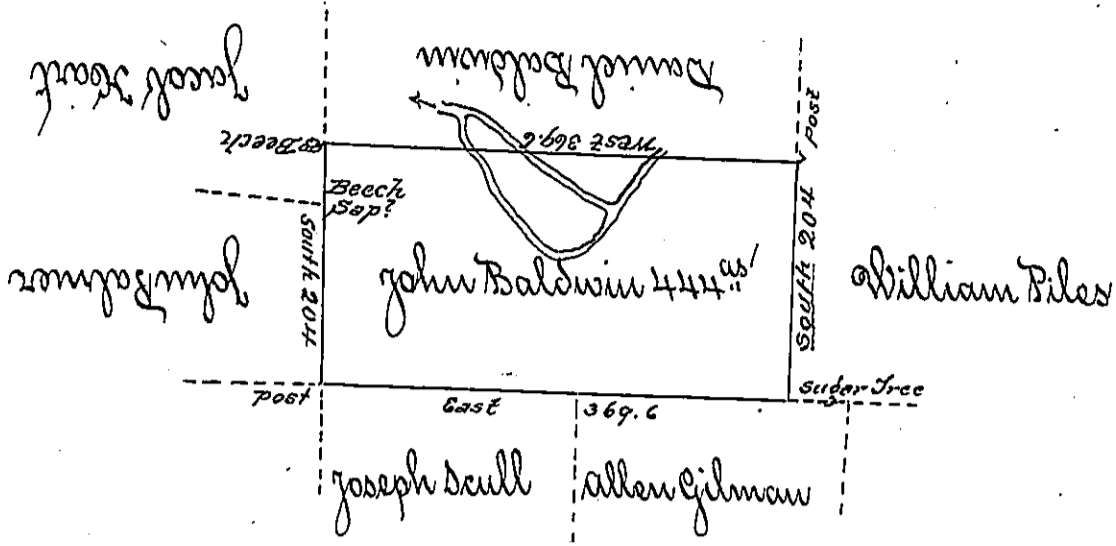 Jacob Hart
Daniel Baldwin
Beech
West 369.6
Post
Beech
Sap?
South 204
John Palmer
John Baldwin 444 as'
South 204
William Piles
Post
East 369.6
Sugar Tree
Joseph Scull
Allen Gilman